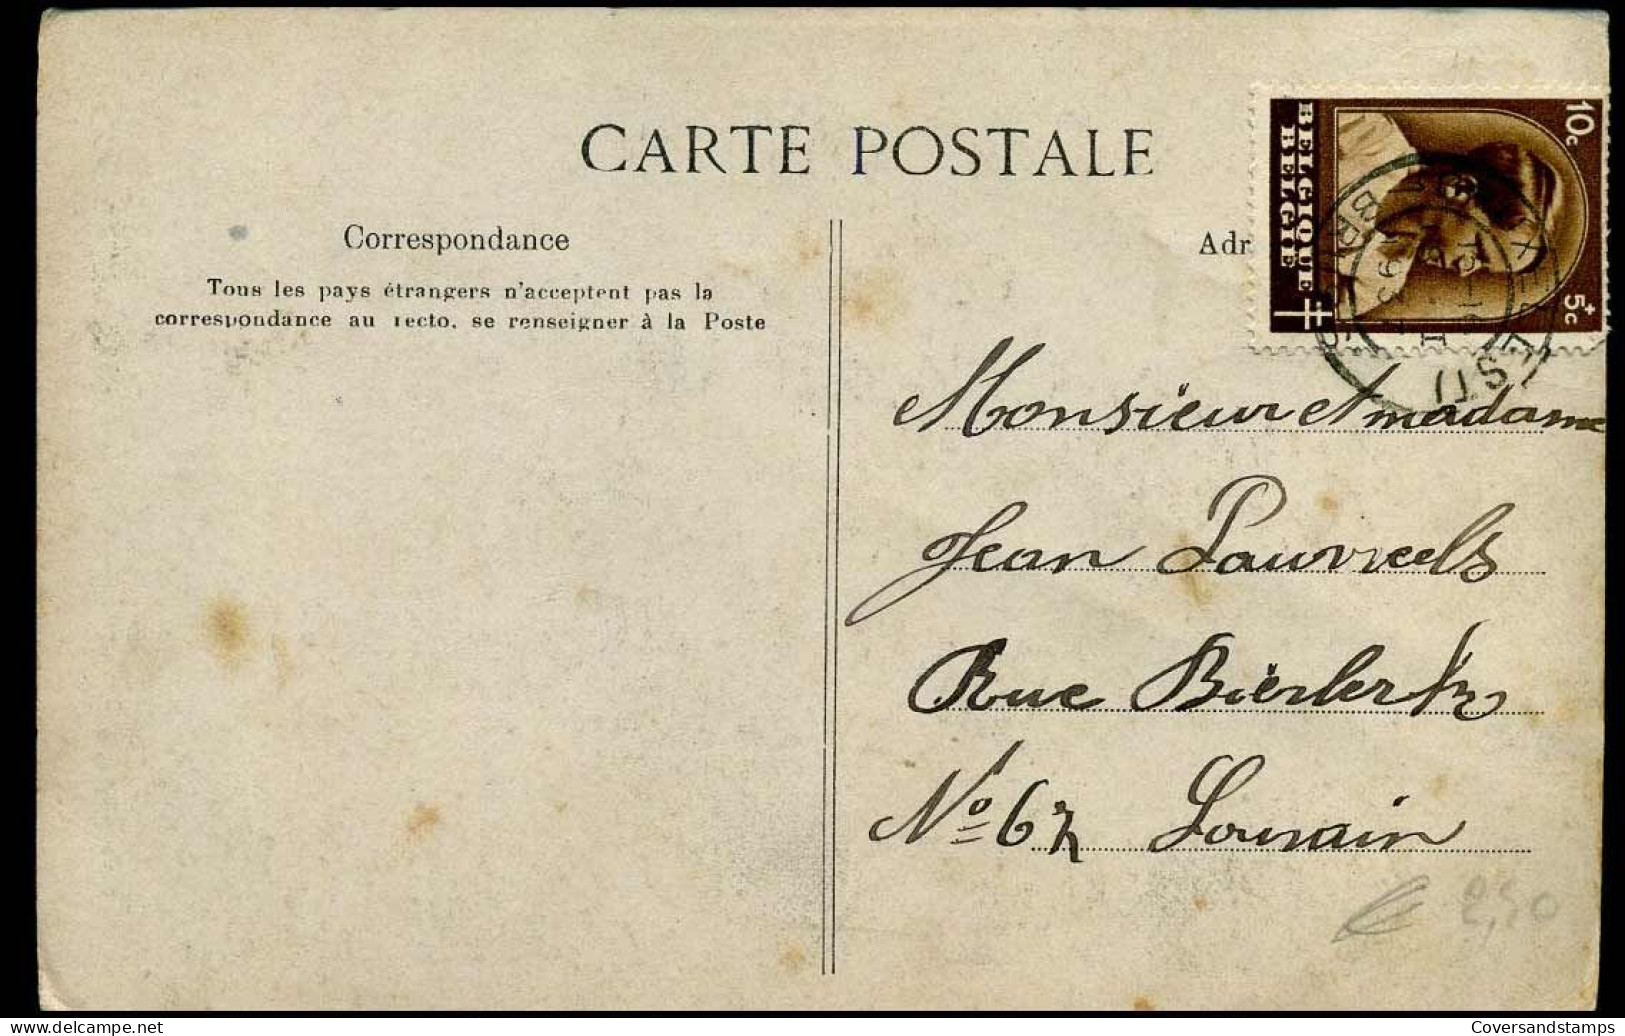 CARTE POSTALE
Correspondance
Tous les pays étrangers n'acceptent pas la
correspondance au recto, se renseigner à la Poste
Adr
10c
+5c
BELGIQUE
BELGIË
Monsieur et madame
Jean Pauwels
Rue
Nº 67 Louvain
2,50
Coversandstamps